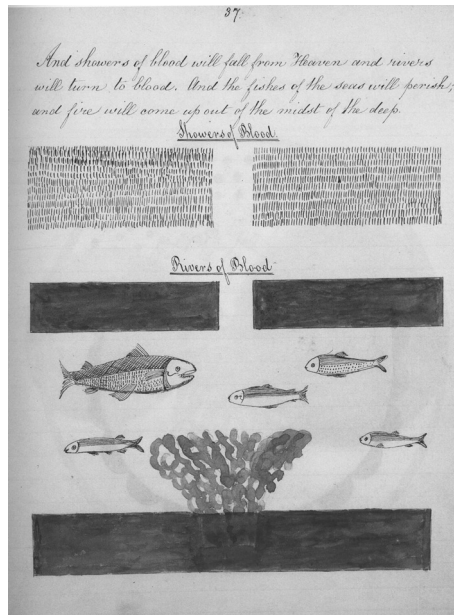 37.
And showers of blood will fall from Heaven and rivers
will turn to blood. And the fishes of the seas will perish;
and fire will come up out of the midst of the deep.
Showers of Blood
Rivers of Blood